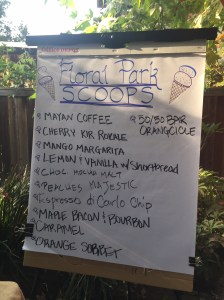 Floral Park
SCOOPS
MAYAN COFFEE
CHERRY KIR ROYALE
MANGO MARGARITA
LEMON & VANILLA w/ Shortbread
CHOC MOCHA MALT
PEACHES MAJESTIC
Espresso di Carlo Chip
MAPLE BACON & BOURBON
CARAMEL
ORANGE SORBET
50/50 BAR
ORANGCICLE